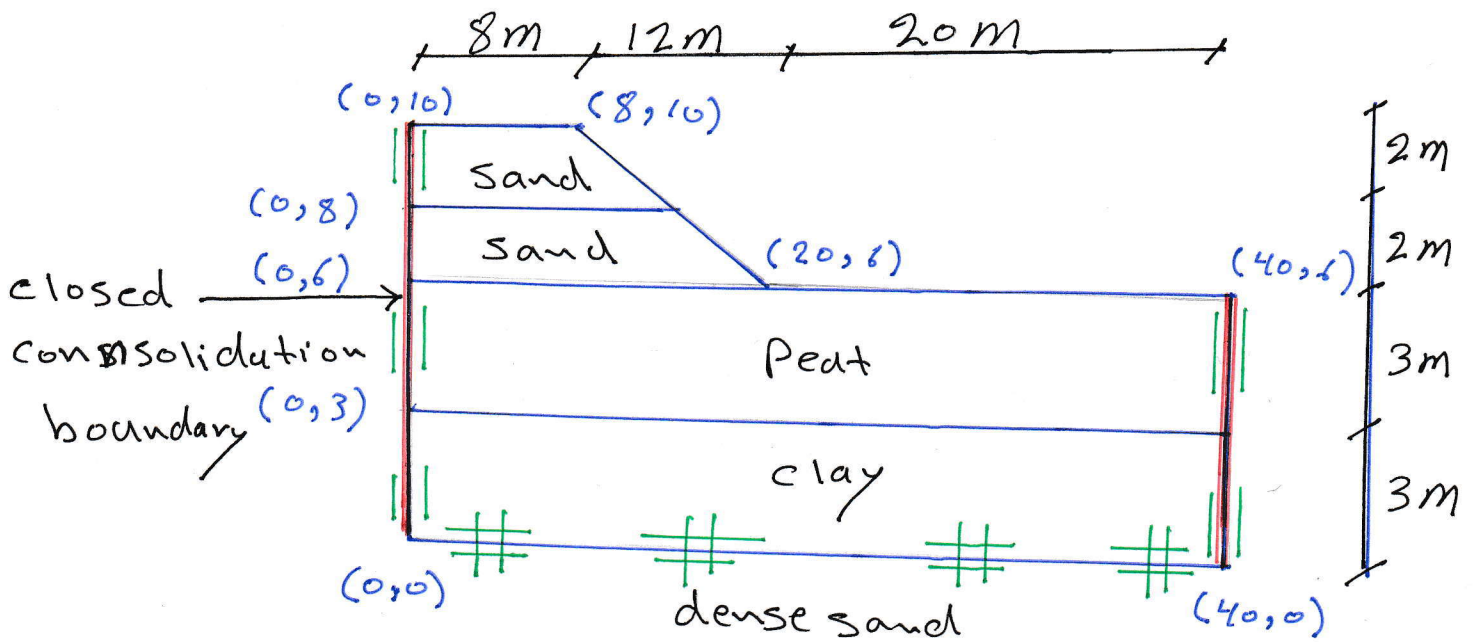 8m 12m 20m
(0,10) (8,10)
2m
sand
(0,8)
sand
2m
(0,6) (20,6) (40,6)
closed
consolidation
Peat
3m
boundary (0,3)
clay
3m
(0,0) (40,0)
dense sand